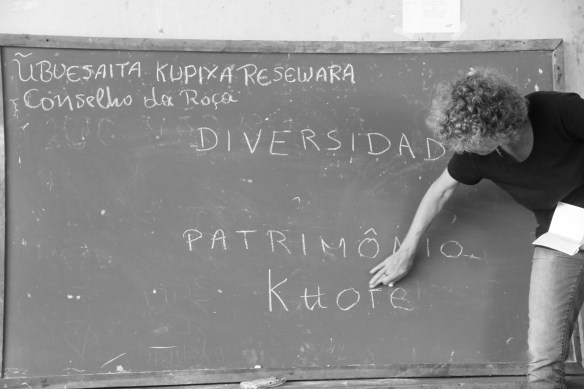 ŨBUESAITA KUPIXA RESEWARA
Conselho da Roça
DIVERSIDAD
PATRIMÔNIO